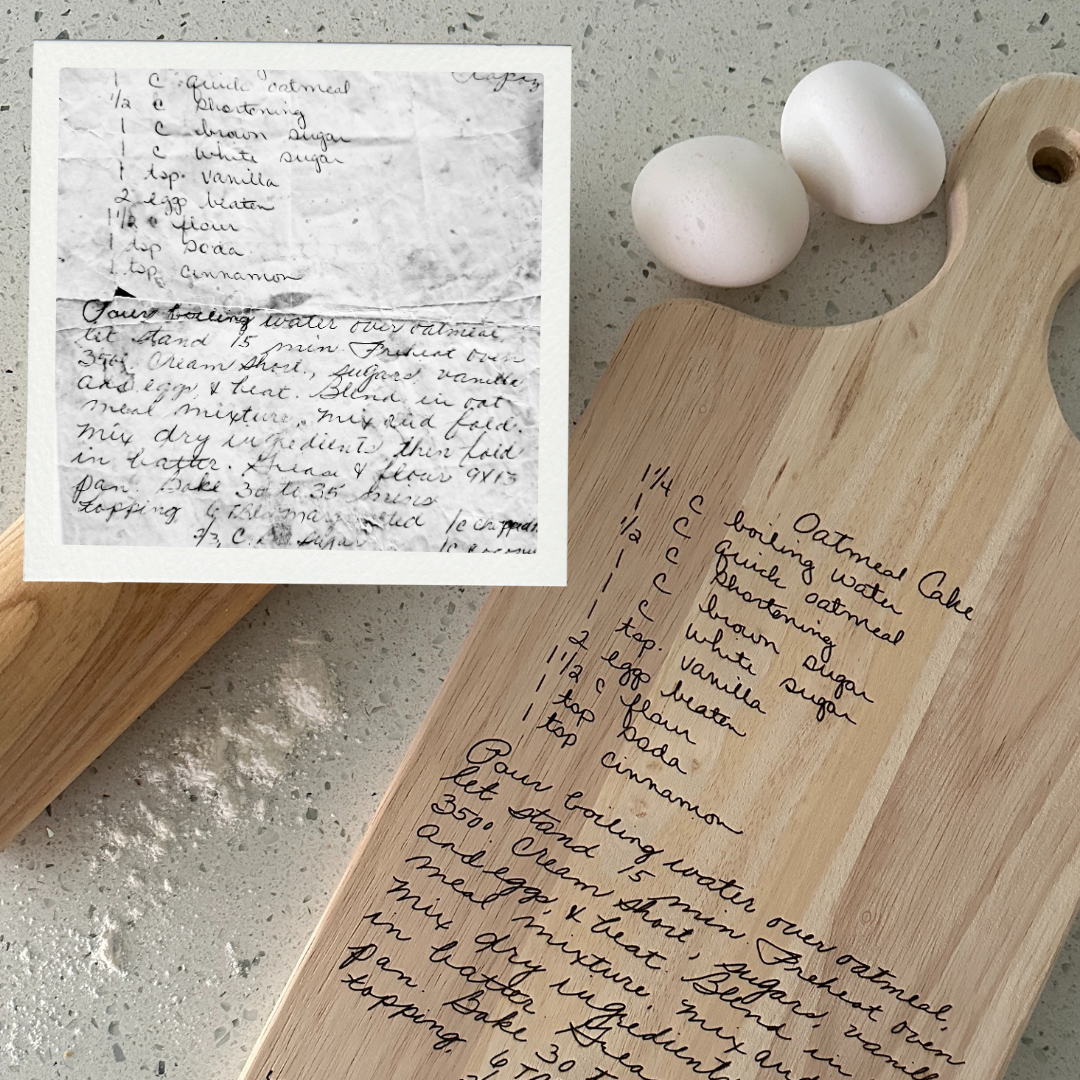 1 C quick oatmeal
1/2 C shortening
1 C brown sugar
1 C white sugar
1 tsp. vanilla
2 eggs beaten
1 1/2 C flour
1 tsp soda
1 tsp. cinnamon
Pour boiling water over oatmeal,
let stand 15 min. Preheat oven
350°. Cream short., sugars, vanilla
and eggs, & beat. Blend in oat
meal mixture. Mix and fold.
Mix dry ingredients then fold
in batter. Grease & flour 9x13
pan. Bake 30 to 35 mins
topping 6 Tbls marg melted 1c chopped
2/3 C. sugar 1c
Oatmeal Cake
1 1/4 C boiling water
1 C quick oatmeal
1/2 C shortening
1 C brown sugar
1 C white sugar
1 tsp. vanilla
2 eggs beaten
1 1/2 C flour
1 tsp soda
1 tsp cinnamon
Pour boiling water over oatmeal,
let stand 15 min. Preheat oven
350° Cream short., sugars, vanill
and eggs, & beat. Blend in
meal mixture. Mix and
Mix dry ingredients
in batter. Grea
pan. Bake 30 t
topping. 6 T